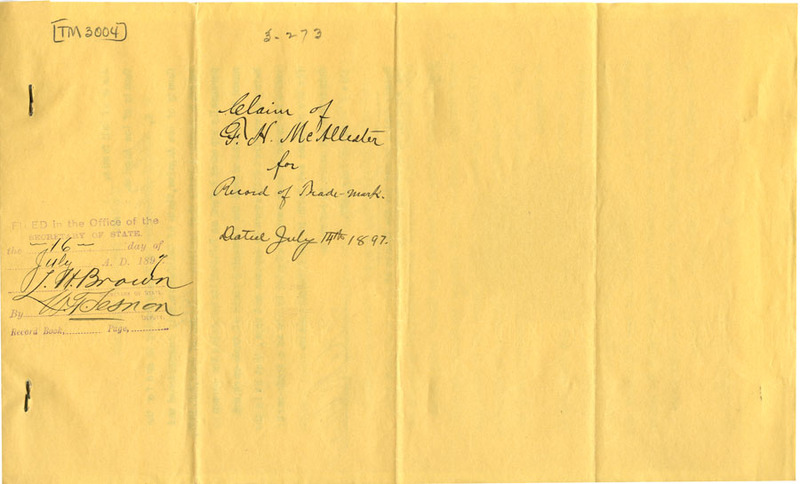 [TM 3004]
3-273
Claim of
G. H. McAllister
for
Record of Trade-mark.
Dated July 14th 1897.
FILED in the Office of the
SECRETARY OF STATE.
the -16- day of
July A. D. 1897
L. H. Brown
By
Record Book, Page,